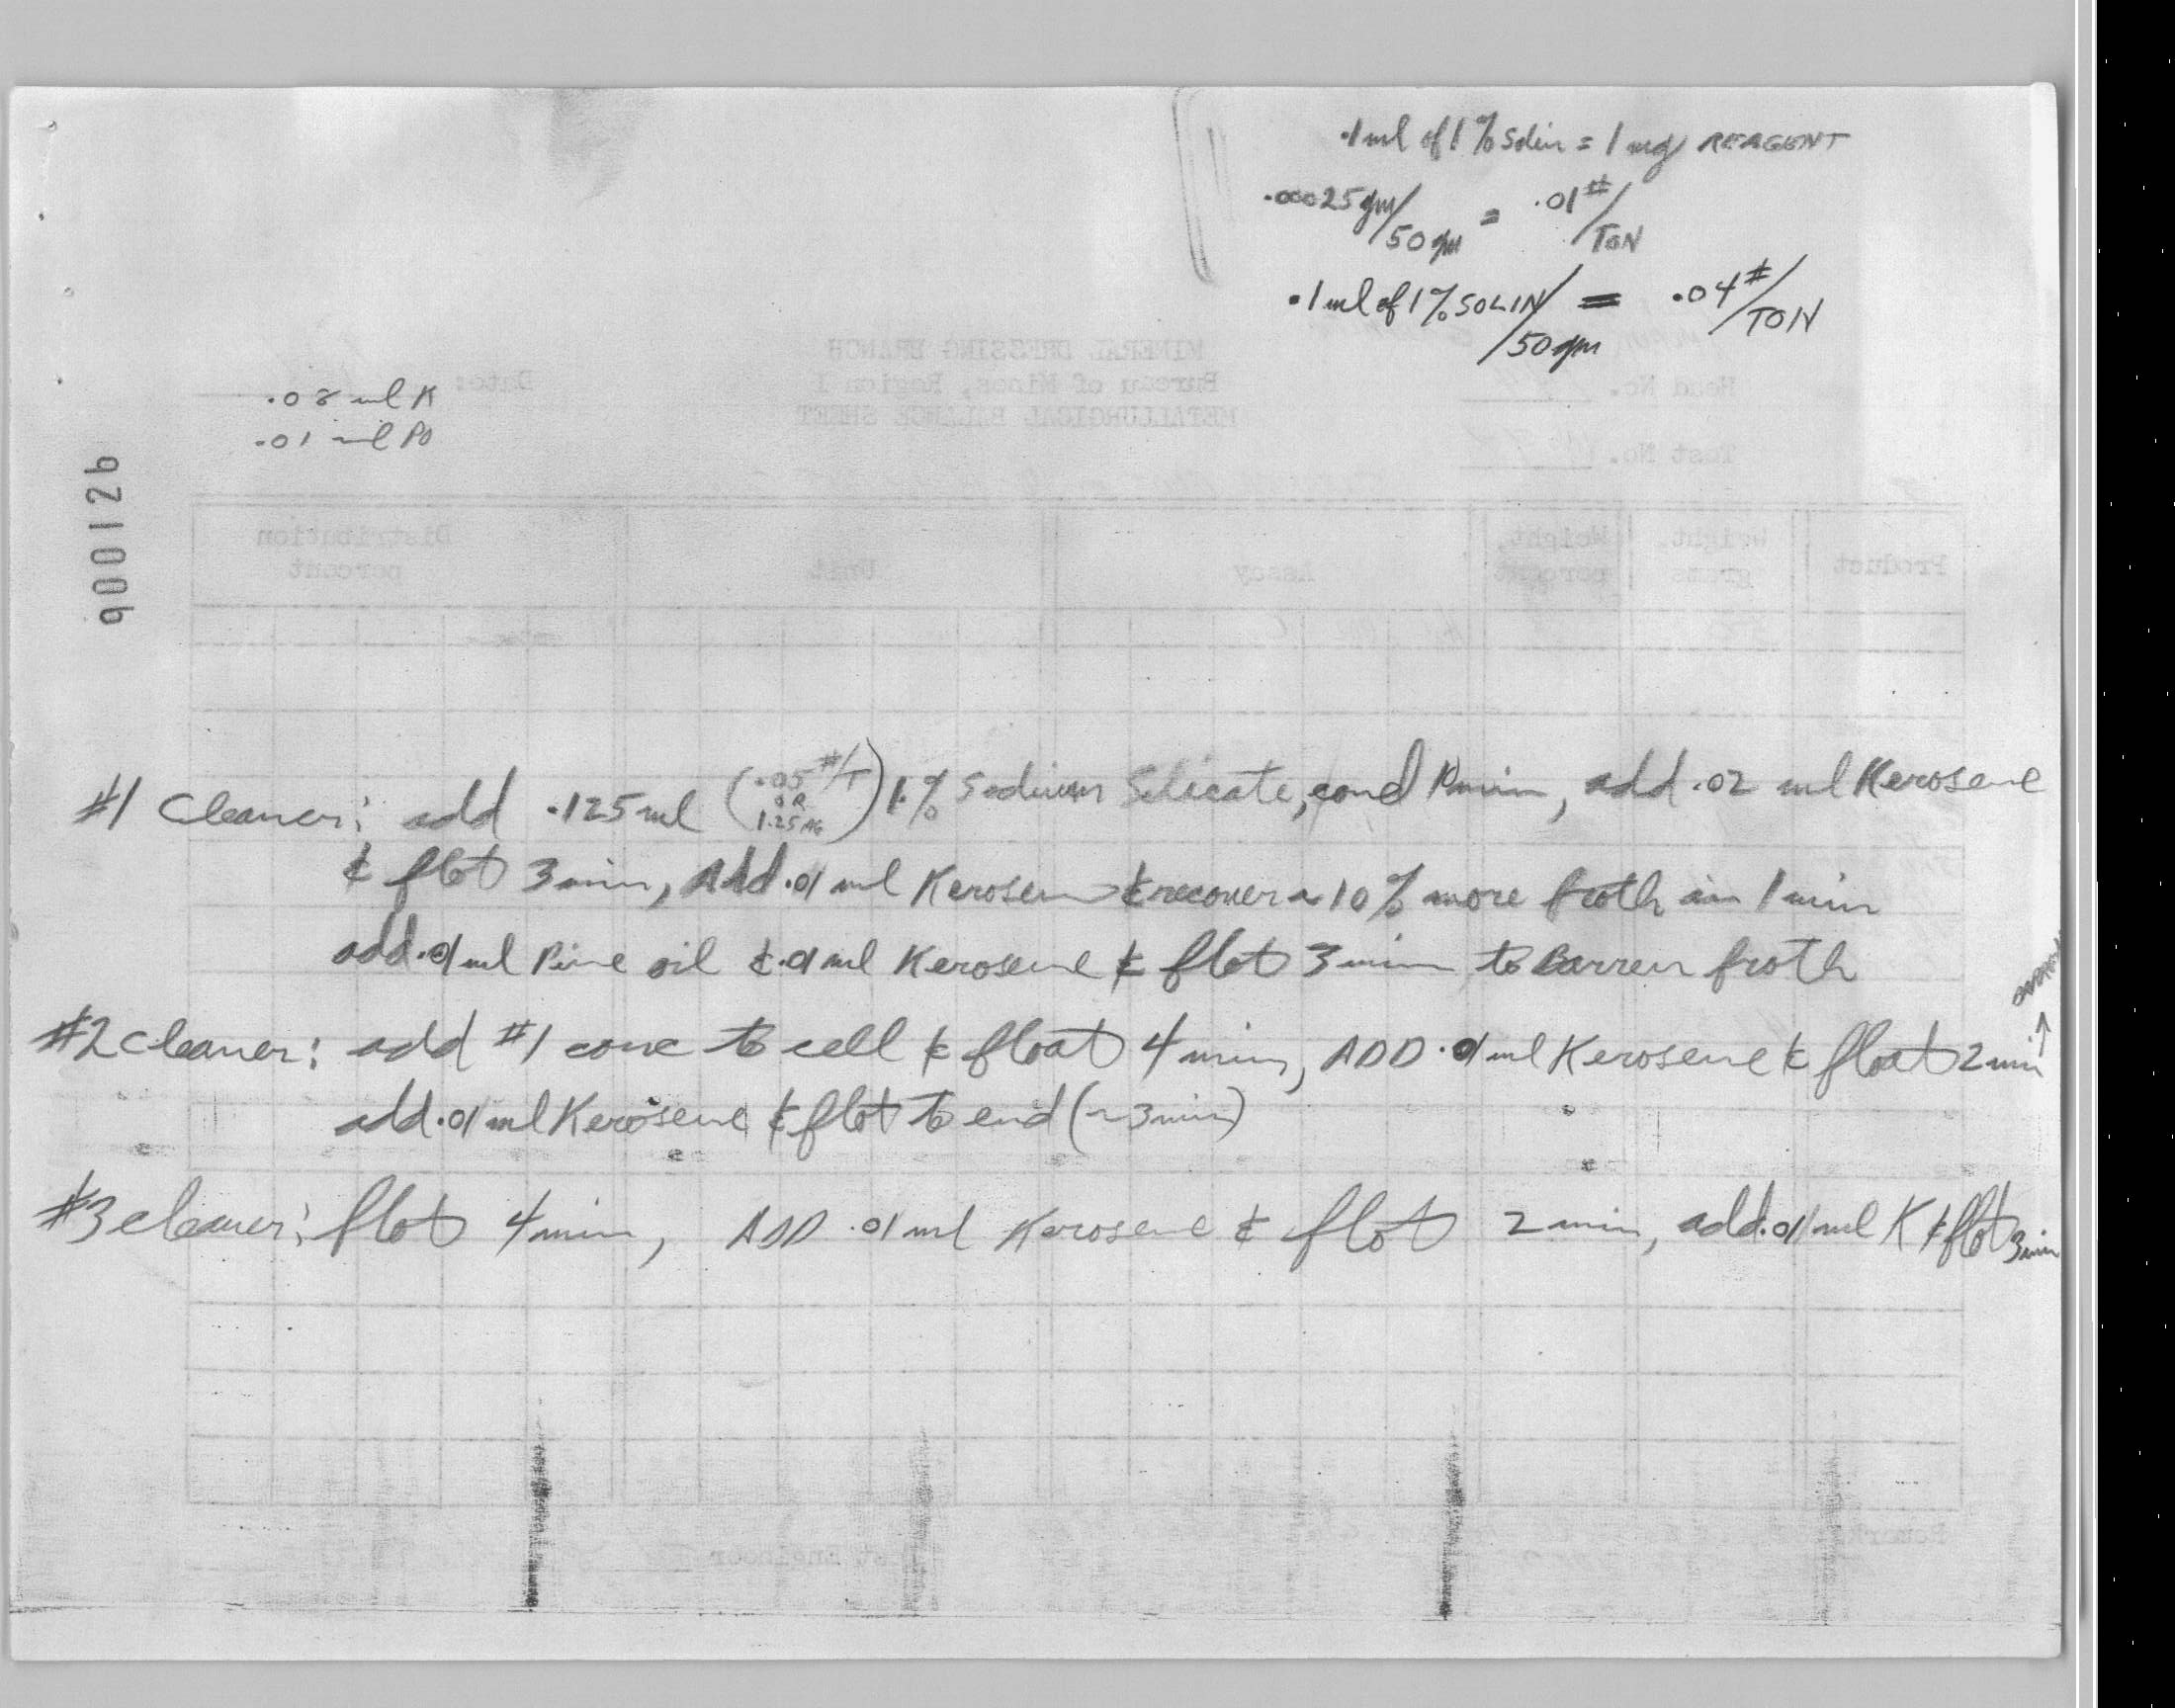 .1 ml of 1% Soln = 1 mg REAGENT
.00025 gm/50 gm = .01#/TON
.1 ml of 1% SOLIN/50 gm = .04#/TON
.08 ml K
.01 ml PO
90012b
#1 Cleaner: add .125 ml (.05 #/T OR 1.25 MG) 1% Sodium Silicate, cond min, add .02 ml Kerosene
& flot 3 min, Add .01 ml Kerosene & recover ~ 10% more froth in 1 min
add .01 ml Pine oil & .01 ml Kerosene & flot 3 min to Barren froth
#2 cleaner: add #1 conc to cell & float 4 min, ADD .01 ml Kerosene & float 2 min →
add .01 ml Kerosene & flot to end (~3 min)
#3 cleaner: flot 4 min, ADD .01 ml Kerosene & flot 2 min, add .01 ml K & flot 3 min
MINERAL DRESSING BRANCH
Bureau of Mines, Region I
METALLURGICAL BALANCE SHEET
Date:
Head No.
Test No.
Product Weight, grams Weight, percent Assay Unit Distribution percent
Remarks
Test Engineer